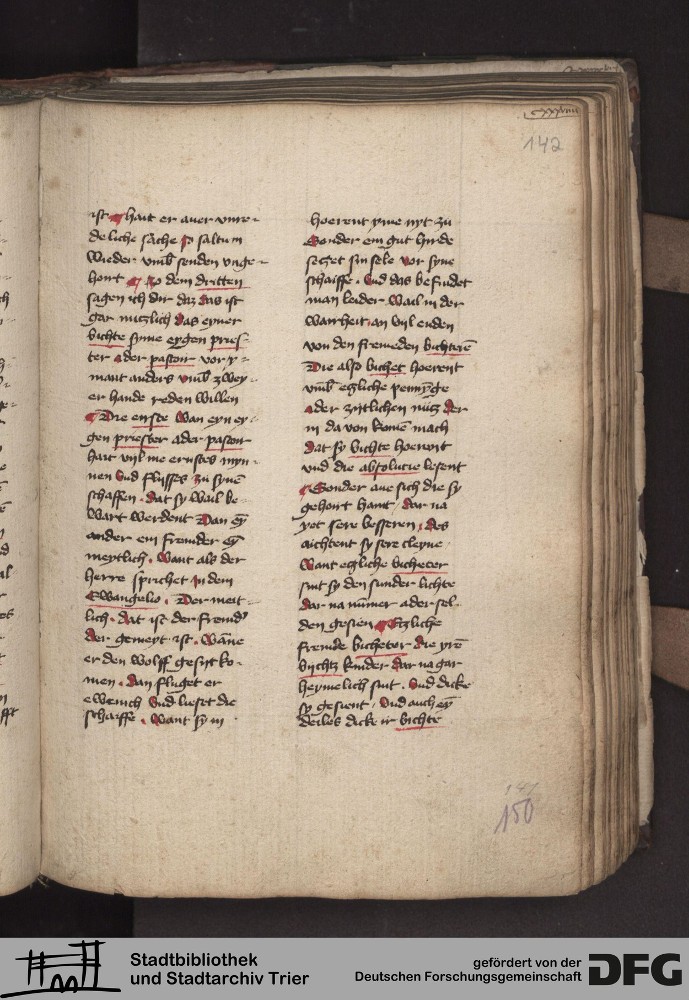 cxxxviii
142
ist hait er auer vnre-
deliche sache so saltum
wieder vmb senden vnge-
hort Zo dem dritten
sagen ich dir daz das ist
gar nutzlich das eyner
bichte syme eygen pries-
ter ader pastoir vor y-
mant anders vmb zwey-
er hande reden willen
Die erste wan eyn ey-
gen priester ader pastoir
hait vil me ernstes myn-
nen vnd flysses zu syne
schaffen. dat sy wail be-
wart werdent Dan ey
ander ein fremder ey
meytlich. want als der
herre sprichet in dem
Ewangelio. Der meit-
lich. dat ist der fremd
der gemeyt ist. wane
er den wolff gesyt ko-
men. dan fluget er
ewenich vnd lieset die
schaiffe. want sy in
hoerent yme nyt zu
Sonder ein gut hirde
setzet sin sele vor syne
schaiffe. vnd das befindet
man leider wail in der
warheit. an vil enden
von den fremeden bichtere
Die also bichet hoerent
vmb etzliche pennyge
ader zytlichen nutz der
in da von kome mach
dat sy bichte hoerent
vnd die absolucie lesent
Sonder ane sich die sy
gehort haint dar na
yet sere besseren, des
aichtent sy sere cleyne
want etzliche bicheter
sint sy den sunder lichte
dar na nummer ader sel-
den gesien Etzliche
fremde bichetor die yre
bichtz kinder dar na gar
heymelich sint. vnd dicke
sy gesient, vnd auch ey
deiles dick ir bichte
141
150
Stadtbibliothek
und Stadtarchiv Trier
gefördert von der
Deutschen Forschungsgemeinschaft
DFG